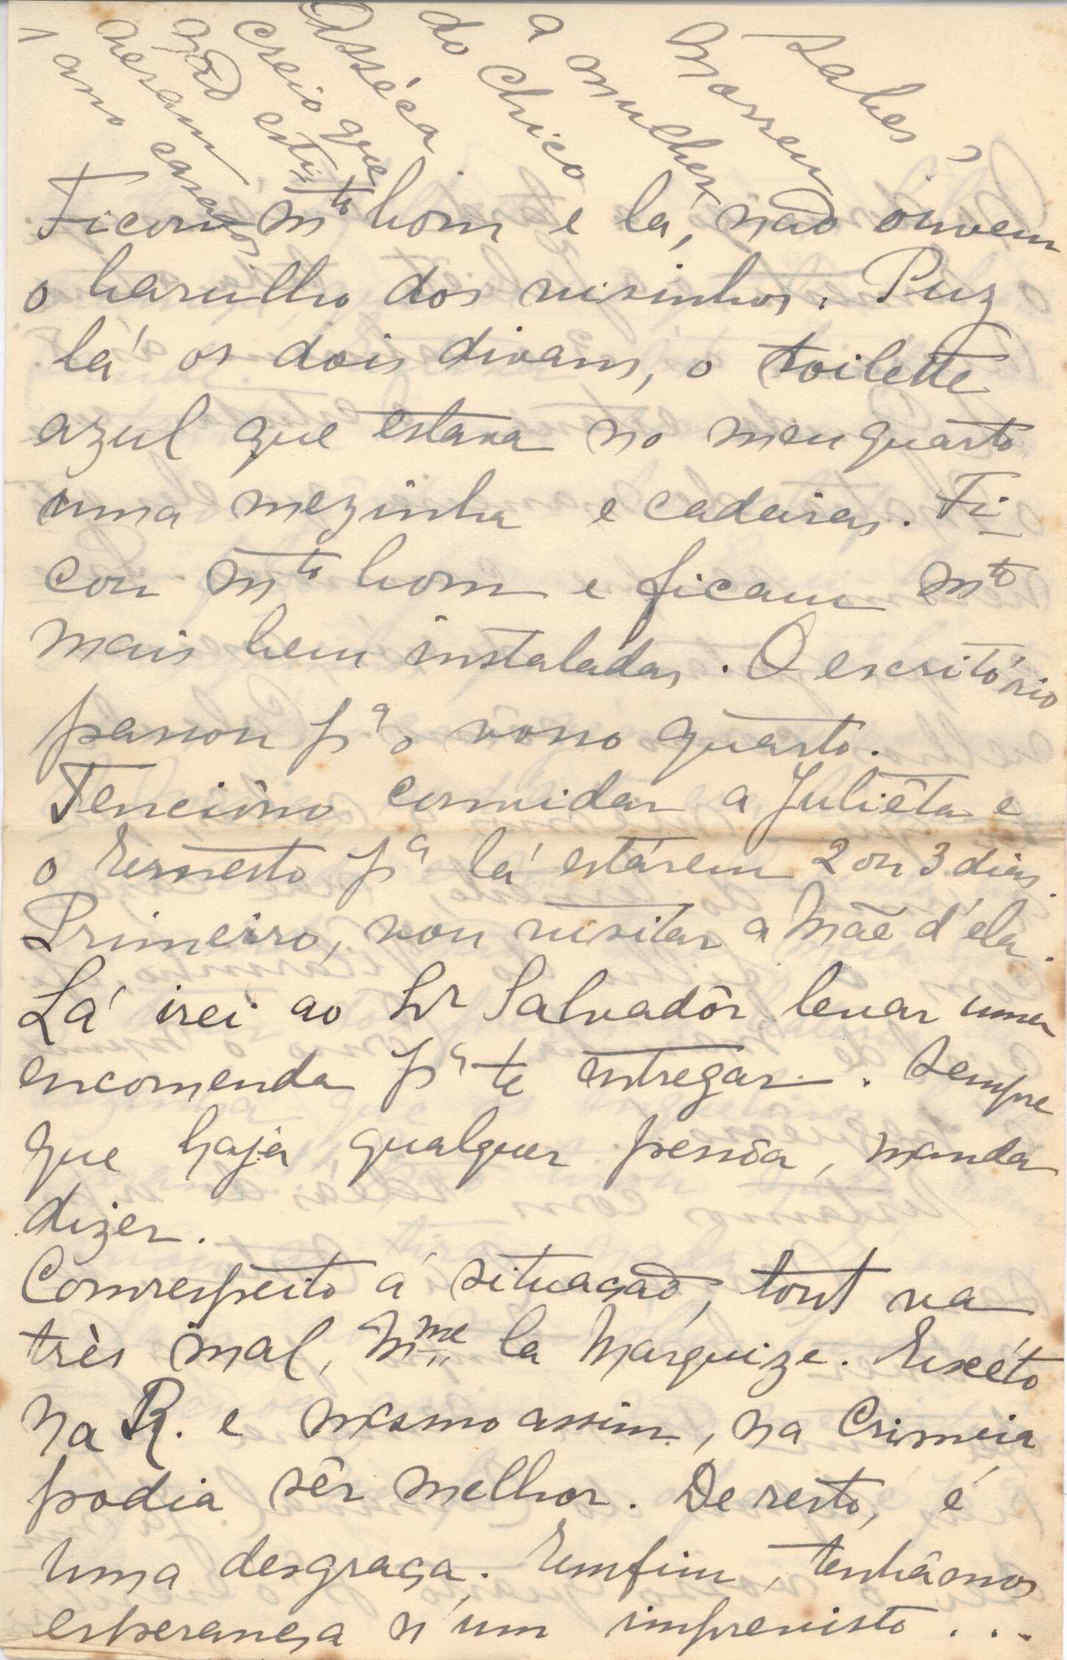 Sabes,
Morreu
a mulher
do Chico
Asséca
creio que
não esti-
veram
1 ano casados
Ficou mto bom e lá, não ouvem
o barulho dos visinhos. Puz
lá os dois divans, o toilette
azul que estava no meu quarto
uma mezinha e cadeiras. Fi-
cou mto bom e ficam mto
mais bem instaladas. O escritório
passou pa o vosso quarto.
Tenciôno convidar a Juliêta e
o Ernesto pa lá estárem 2 ou 3 dias.
Primeiro, vou visitar a Mãe d'ela.
Lá irei ao Sr Salvadôr levar uma
encomenda pa te entregar. Sempre
que haja qualquer pessôa, manda
dizer.
Com respeito á situação, tout va
très mal, Mme la Marquize. Excéto
na R. e mesmo assim, na Crimeia
podia sêr melhor. De resto, é
uma desgraça. Emfim, tenhâmos
esperança n'um imprevisto...